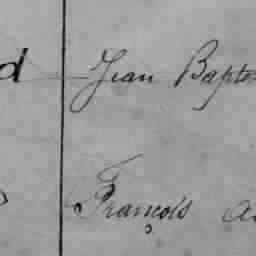 d Jean Bapt
François a